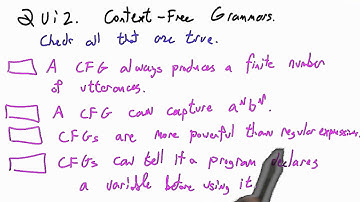 QUiz. Context-Free Grammars.
Check all that are true.
A CFG always produces a finite number
of utterances.
A CFG can capture aᴺbᴺ.
CFGs are more powerful than regular expressions
CFGs can tell if a program declares
a variable before using it